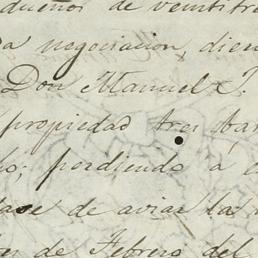 dueños de veintitre
a negociacion, dien
Don Manuel J.
propiedad tres bar
o; perdiendo á
ase de aviar la
de Febrero del